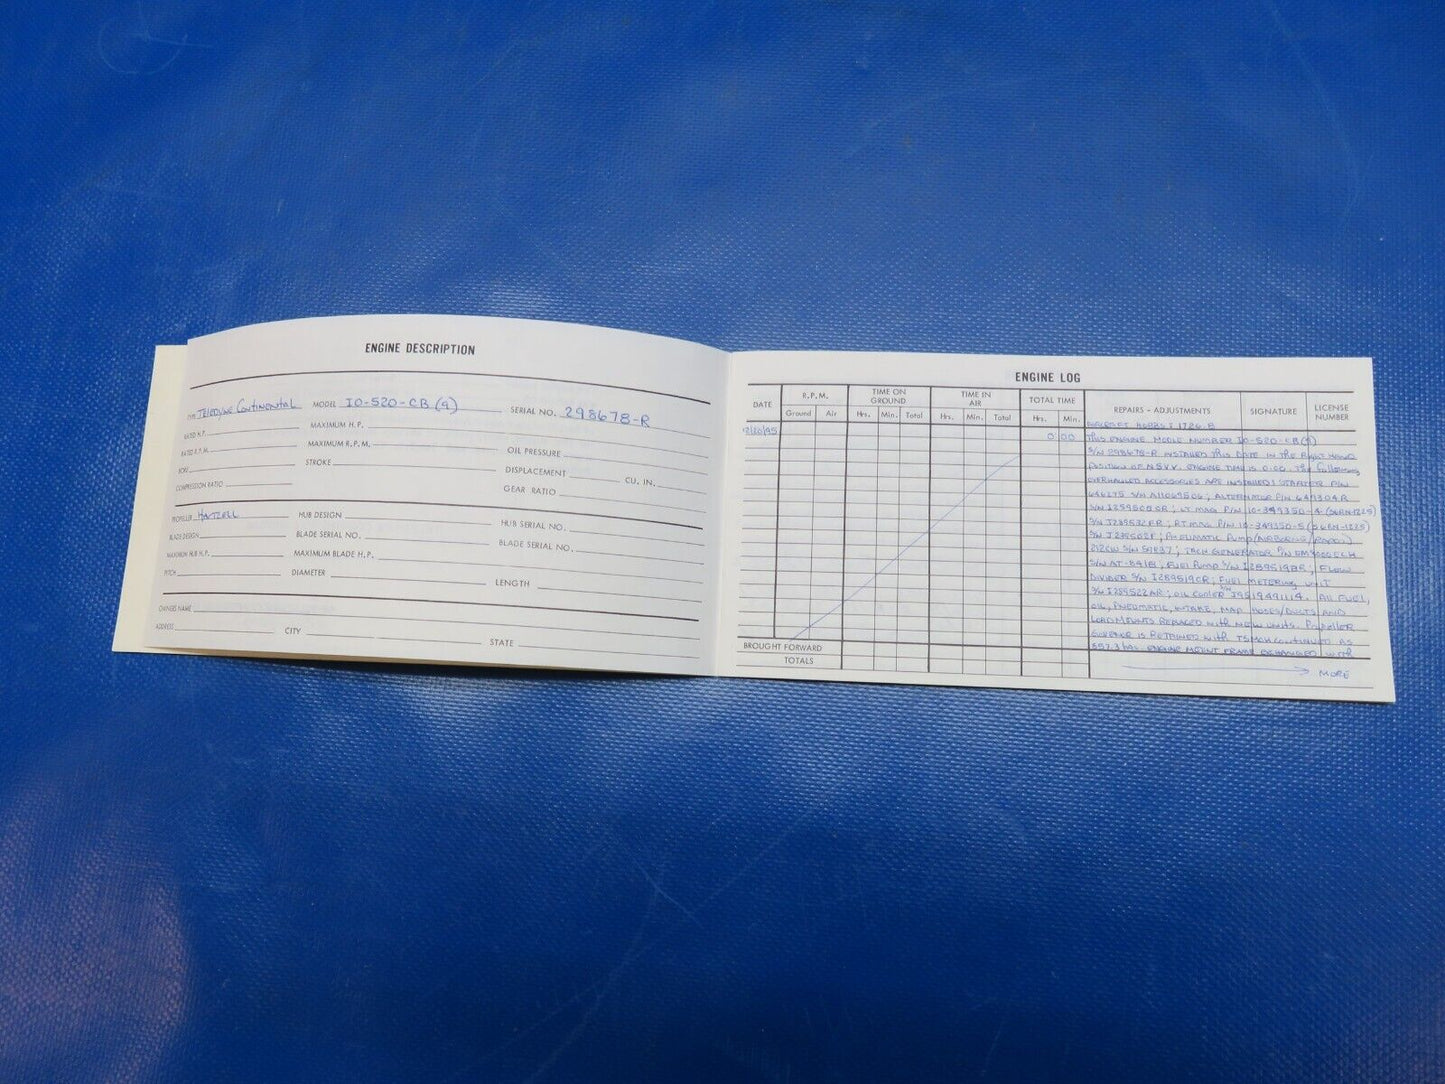 ENGINE DESCRIPTION
TYPE TELEDYNE CONTINENTAL MODEL IO-520-CB (9) SERIAL NO. 298678-R
RATED H.P. MAXIMUM H.P.
RATED R.P.M. MAXIMUM R.P.M. OIL PRESSURE
BORE STROKE DISPLACEMENT CU. IN.
COMPRESSION RATIO GEAR RATIO
PROPELLER HARTZELL HUB DESIGN HUB SERIAL NO.
BLADE DESIGN BLADE SERIAL NO. BLADE SERIAL NO.
MAXIMUM HUB H.P. MAXIMUM BLADE H.P.
PITCH DIAMETER LENGTH
OWNERS NAME
ADDRESS CITY STATE
ENGINE LOG
DATE R.P.M. TIME ON GROUND TIME IN AIR TOTAL TIME REPAIRS - ADJUSTMENTS SIGNATURE LICENSE NUMBER
Ground Air Hrs. Min. Total Hrs. Min. Total Hrs. Min.
HOBBS 1726.8
12/20/95 0 00 THIS ENGINE MODEL NUMBER IO-520-CB(9)
S/N 298678-R INSTALLED THIS DATE IN THE RIGHT HAND
POSITION OF ENGINE TIME IS 0:00. THE FOLLOWING
OVERHAULED ACCESSORIES ARE INSTALLED: STARTER P/N
646275 S/N ; ALTERNATOR P/N 649304R
S/N ; LT MAG P/N 10-349350-
S/N ; RT MAG P/N 10-349350-5
S/N ; PNEUMATIC PUMP (AIRBORNE/
212CW S/N ; TACH GENERATOR P/N
S/N ; FUEL PUMP S/N ; FLOW
DIVIDER S/N I289519CR; FUEL METERING UNIT
S/N I289522AR; OIL COOLER S/N . ALL FUEL,
OIL, PNEUMATIC, INTAKE, MAP HOSES/DUCTS AND
LORD MOUNTS REPLACED WITH NEW UNITS. PROPELLER
GOVERNOR IS RETAINED WITH TSMOH CONTINUED AS
857.3 HRS. ENGINE MOUNT FRAME EXCHANGED WITH
→ MORE
BROUGHT FORWARD
TOTALS